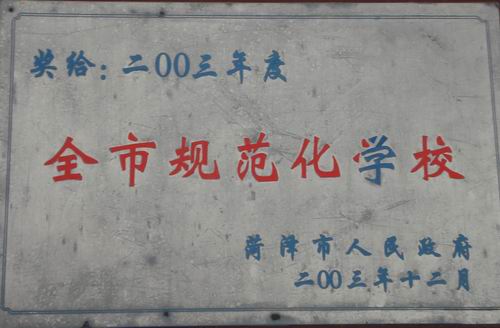 奖给:二00三年度
全市规范化学校
菏泽市人民政府
二00三年十二月